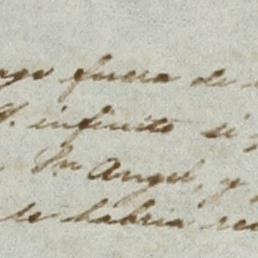 fuera de
infinito si
Sn Angel, y
le habria